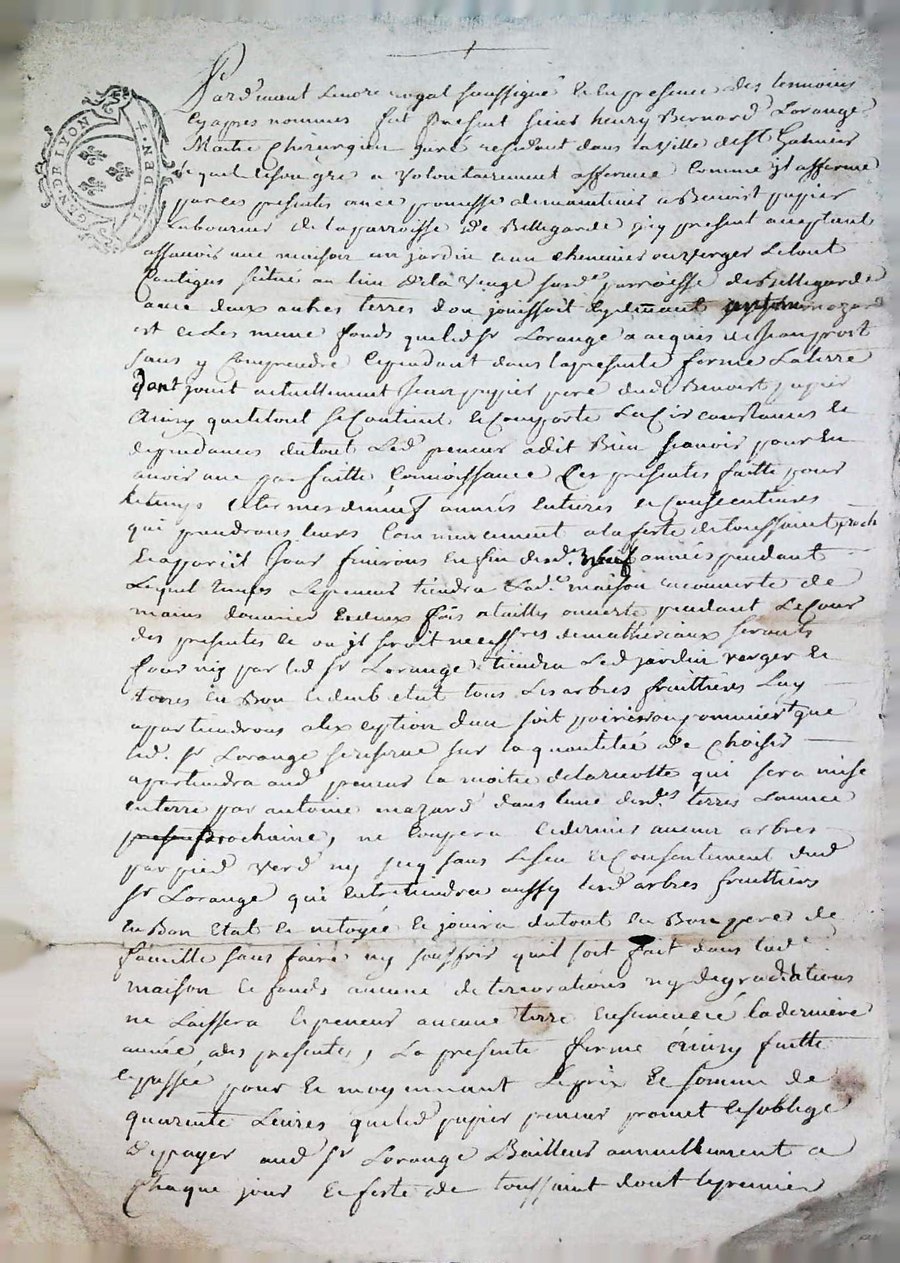 GEN. DE LYON
Pardevant Lenore royal soussigné & en presence des temoins
Cyapres nommes fut present sieur henry Bernard Lorange
Maitre Chirurgien juré residant dans la ville de St Galmier
lequel de son gré a volontairement affermé Comme jl afferme
par ces presentes avec promesse de maintenir a Benoist papier
Laboureur de la parroisse de Bellegarde jcy present acceptant
assavoir une maison un jardin un chenevier ou verger Letout
Contigus situé au lieu de la Veuge susde parroisse de Bellegarde
avec deux autres terres dont jouissoit cydevant antoine mazard
est ce Les meme fonds queled Sr Lorange a acquis de Jean prost
sans y Comprendre cependant dans la presente ferme La terre
dont jouit actuellement Jean papier pere dud Benoist papier
Ainsy que le tout se Contient & Comporte Les Circonstances &
dependances du tout Led preneur a dit Bien scavoir pour en
avoir une parfaitte Connoissance Les presentes faitte pour
le temps & terme de neuf années entieres & Consecutives
qui prendront leurs Commencement a la feste de toussaint proch
& a pareil Jour finiront en fin desd. neuf années pendant
Lequel temps Le preneur tiendra Lade maison couverte de
mains d'ouvrier & deux fois a tailles ouverte pendant Le Cour
des presentes & ou jl seroit necessres de mathériaux seronts
fournis par led Sr Lorange tiendra Led jardin verger &
terres en Bon & deub etat tous Les arbres fruitiers Luy
apartiendrons a l exception d'un soit poirier ou pommier que
led. Sr Lorange se reserve sur la quantité de Choisir
apartiendra aud preneur la moitié de la recolte qui sera mise
en terre par antoine mazard dans lune desdes terres L'année
prochaine, ne Coupera Le dernier aucun arbres
par pied verd ny secq sans Le sceu & Consentement dud
Sr Lorange qui Entretiendra aussy lesd arbres fruitiers
En Bon Etat & netoyée & jouira du tout en Bon pere de
famille sans faire ny souffrir quil soit fait dans lade
maison & fonds aucune deterioratións ny degradations
ne Laissera le preneur aucune terre ensemencée la derniere
année des presentes, La presente ferme Ainsy faitte
& passée pour & moyennant Le prix & somme de
quarente Livres queled papier preneur promet & soblige
de payer aud Sr Lorange Bailleur annuellement a
Chaque jour & feste de toussaint dont le premier